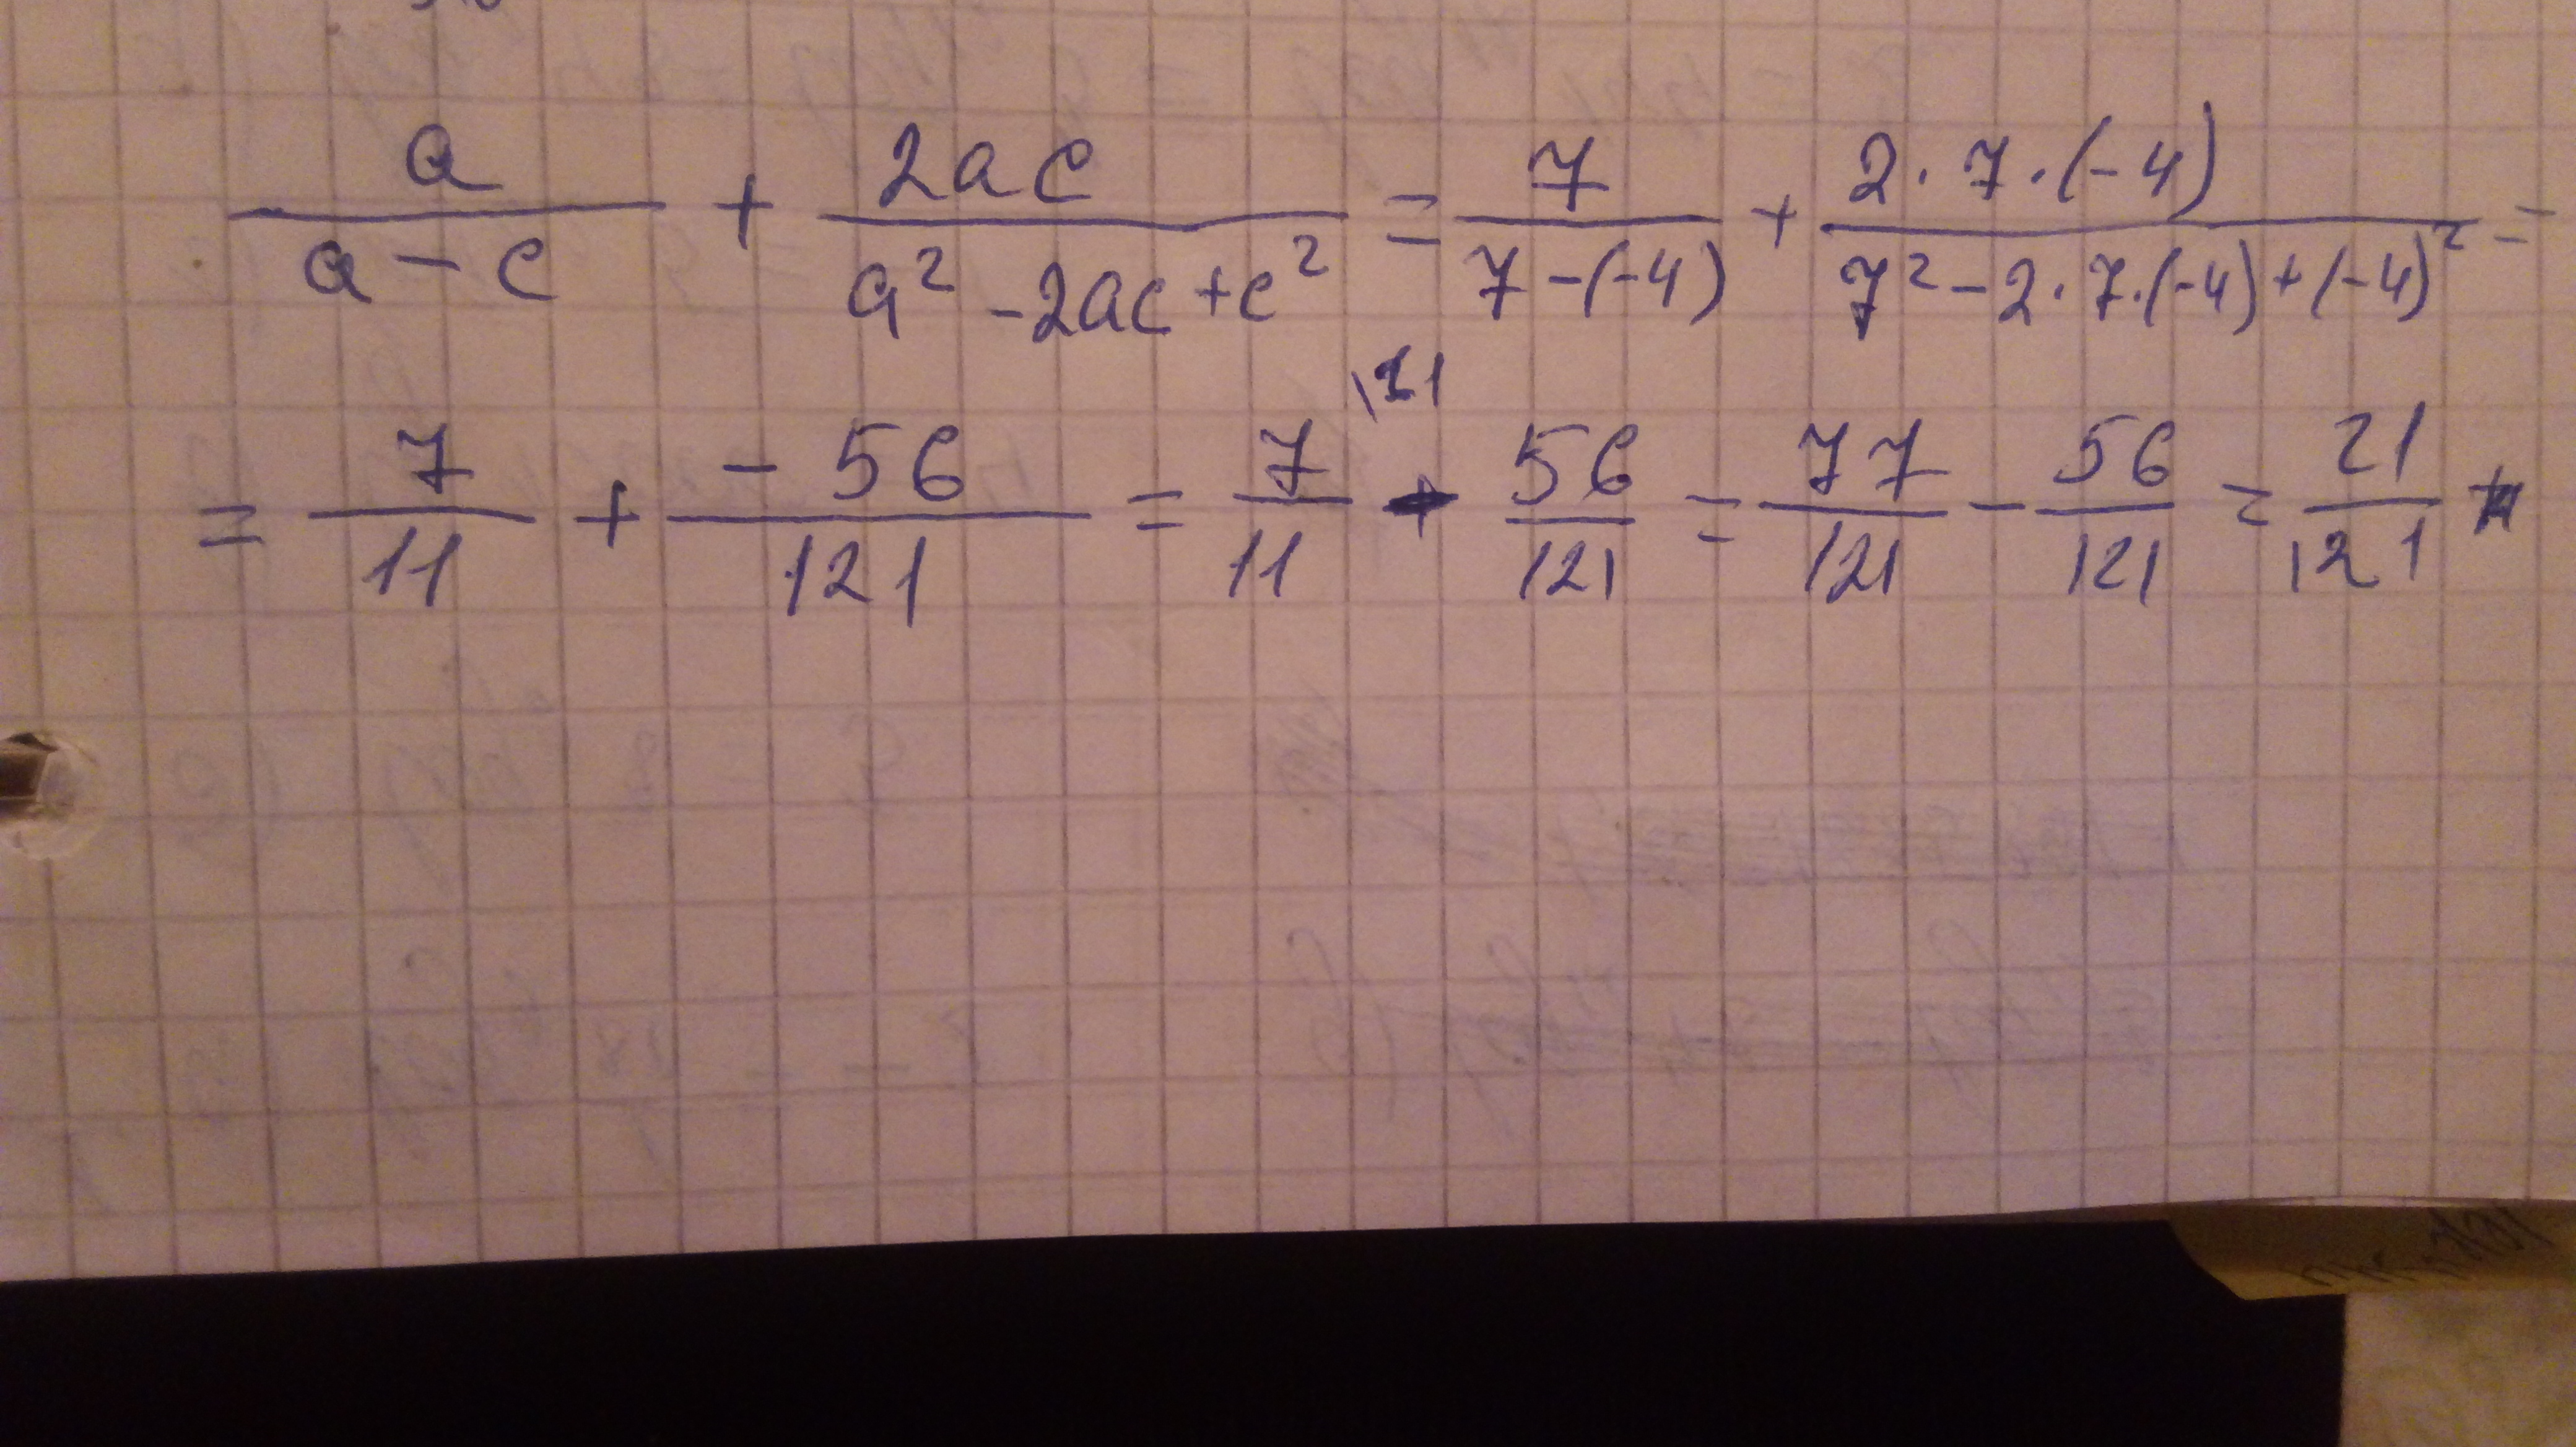 a/(a-c) + 2ac/(a²-2ac+c²) = 7/(7-(-4)) + 2·7·(-4)/(7²-2·7·(-4)+(-4)²) =
= 7/11 + -56/121 = 7/11 \11 - 56/121 = 77/121 - 56/121 = 21/121